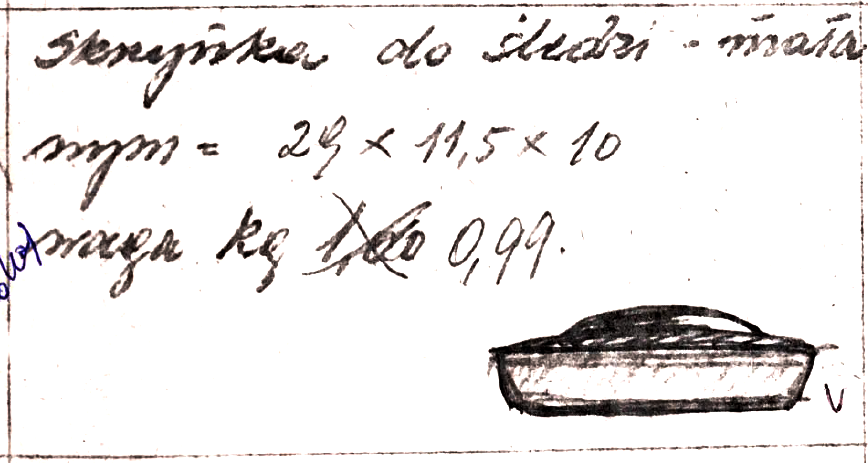 Skrzynka do śledzi - mała
wym = 29 x 11,5 x 10
waga kg 0,99.